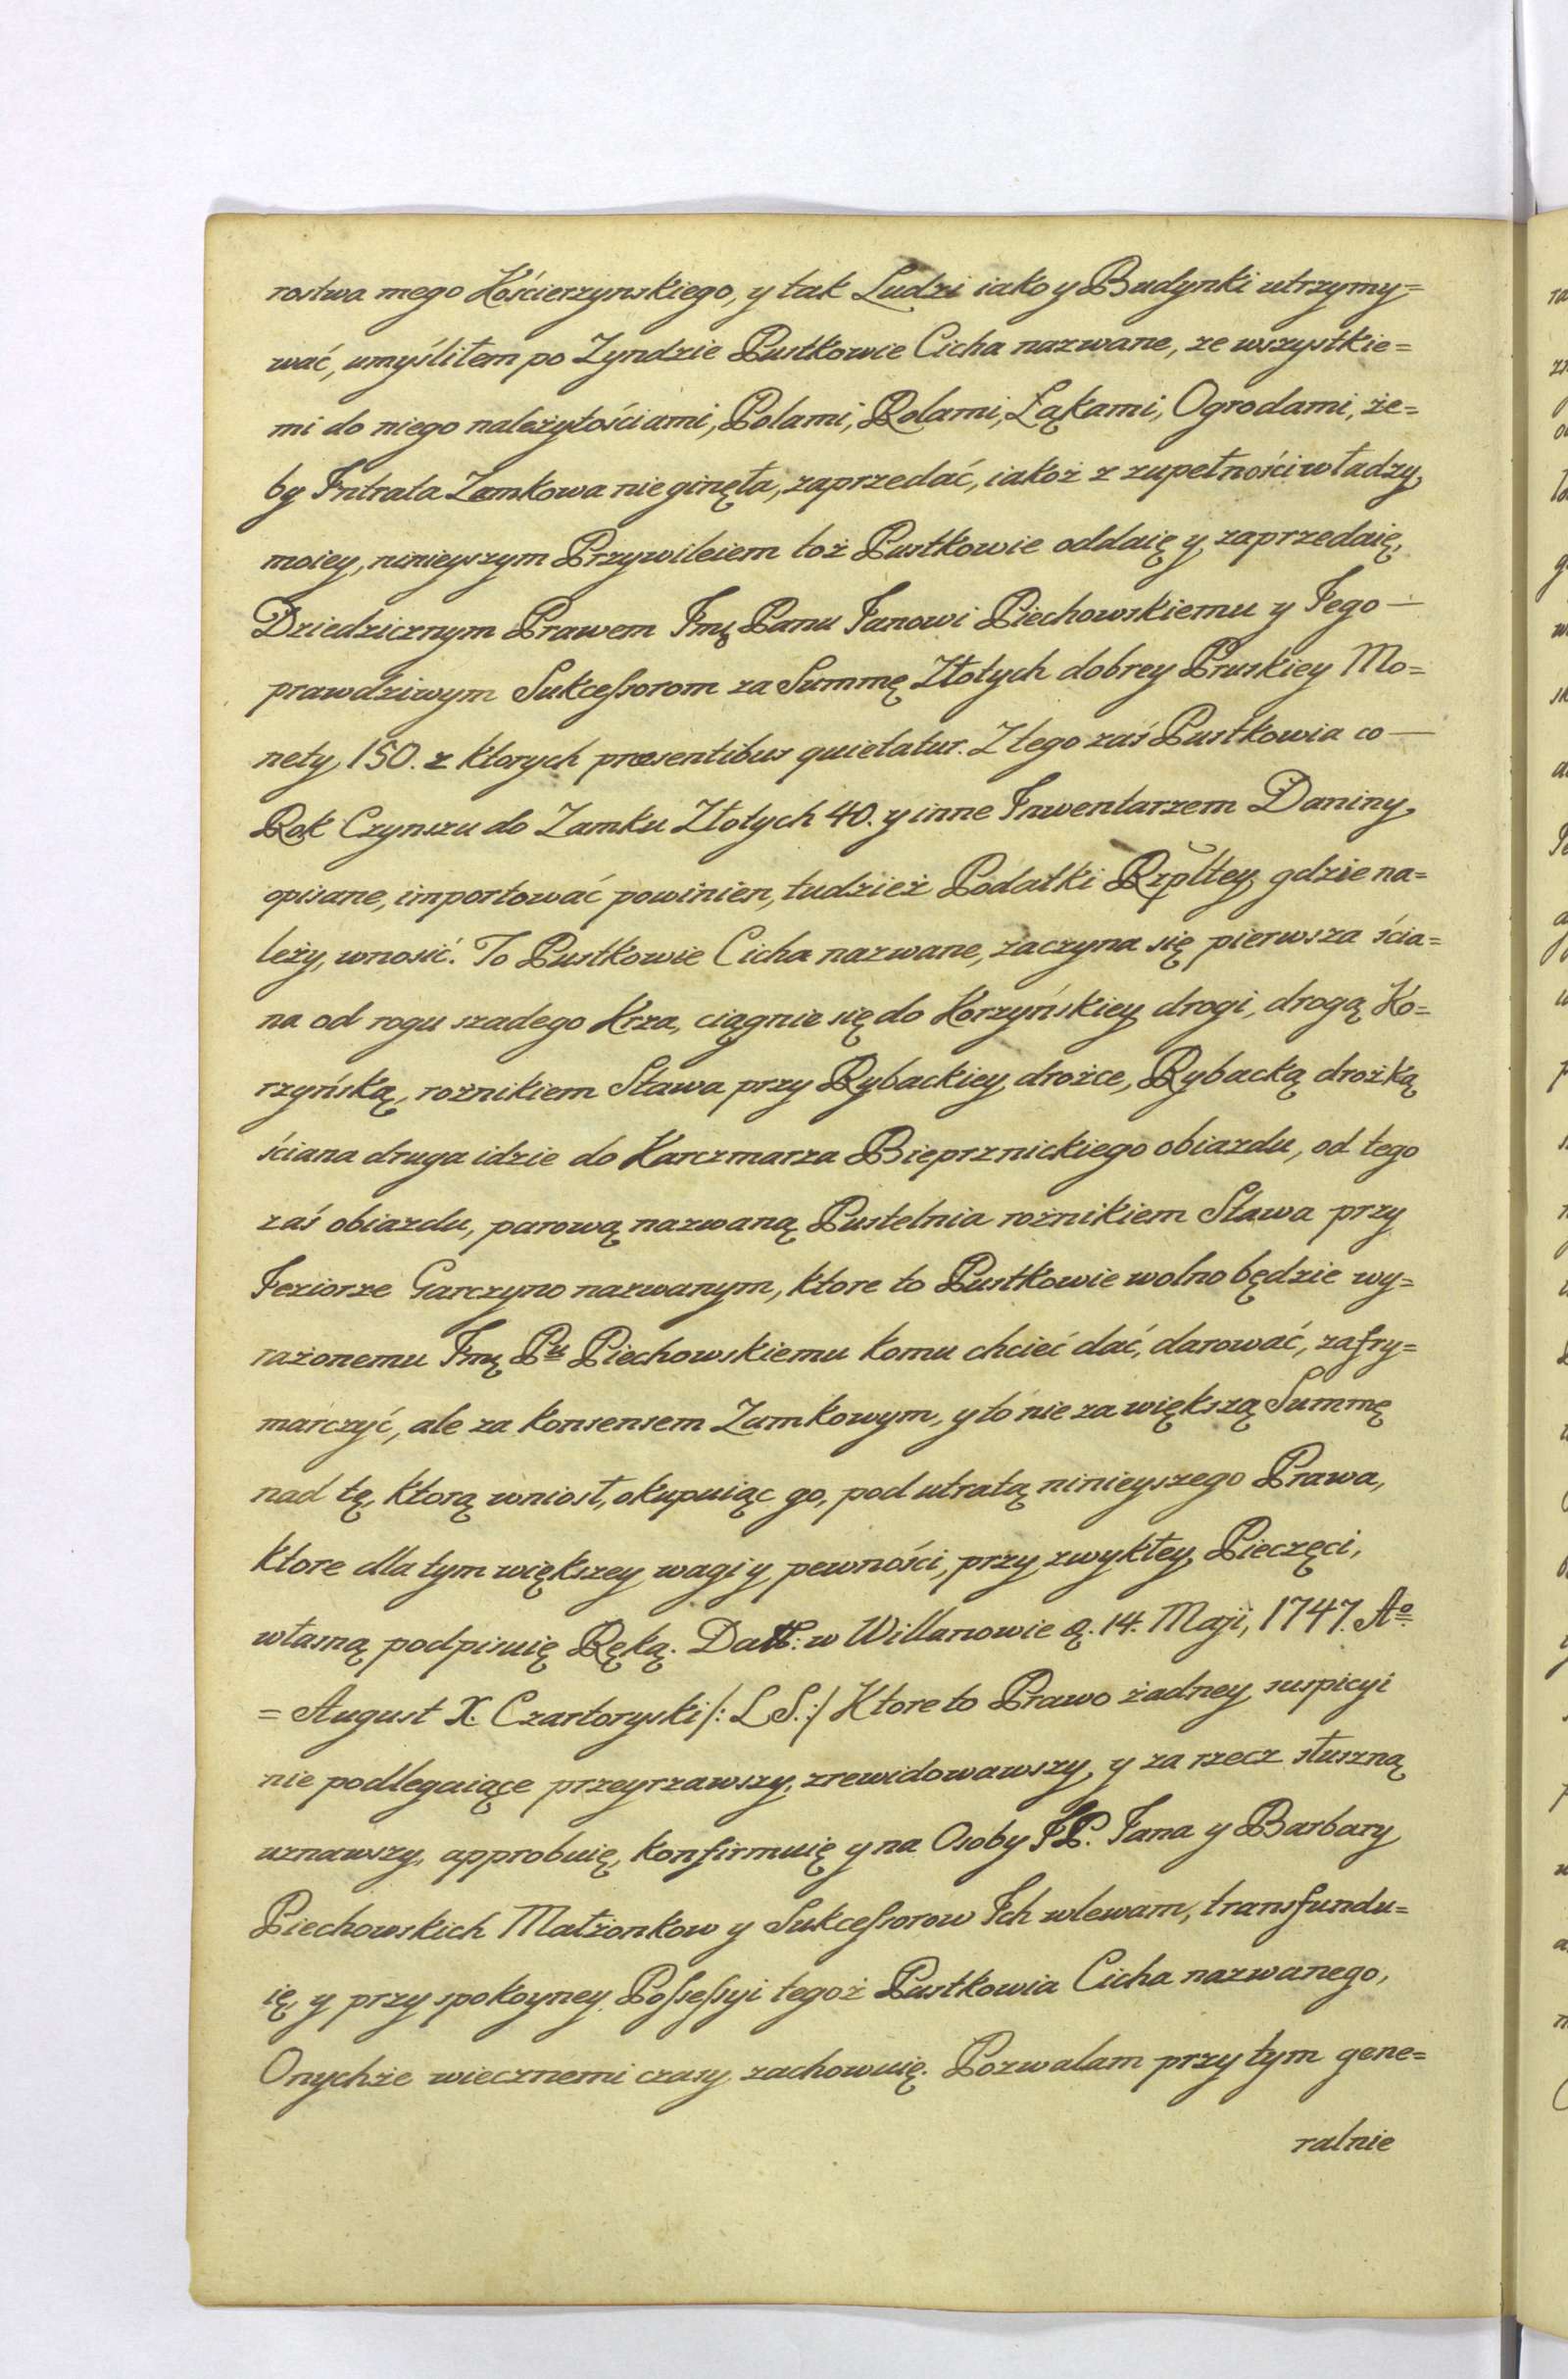 rostwa mego Kościerzynskiego, y tak Ludzi iako y Budynki utrzymy=
wać, umyśliłem po Zyndzie Pustkowie Cicha nazwane, ze wszystkie=
mi do niego należytościami, Polami, Rolami, Łąkami, Ogrodami, że=
by Intrata Zamkowa nie ginęła, zaprzedać, iakoż z zupełności władzy
moiey, ninieyszym Przywileiem toż Pustkowie oddaię y zaprzedaię,
Dziedzicznym Prawem Jmę Panu Janowi Piechowskiemu y Jego —
prawdziwym Sukceſsorom za Summę Złotych dobrey Pruskiey Mo=
nety 150. z ktorych præsentibus quietatur. Z tego zaś Pustkowia co —
Rok Czynszu do Zamku Złotych 40. y inne Inwentarzem Daniny
opisane, importować powinien, tudzież Podatki Rzpltey, gdzie na=
leży, wnosić. To Pustkowie Cicha nazwane, zaczyna się pierwsza ścia=
na od rogu szadego Krza, ciągnie się do Korzyńskiey drogi, drogą Ko=
rzyńską, rożnikiem Stawa przy Rybackiey drożce, Rybacką drożką
ściana druga idzie do Karczmarza Bieprznickiego obiazdu, od tego
zaś obiazdu, parową nazwaną Pustelnia rożnikiem Stawa przy
Jeziorze Garczyno nazwanym, ktore to Pustkowie wolno będzie wy=
rażonemu Jmę Pu Piechowskiemu komu chcieć dać, darować, zafry=
marczyć, ale za konsensem Zamkowym, y to nie za większą Summę
nad tę, ktorą wniosł, okupuiąc go, pod utratą ninieyszego Prawa,
ktore dla tym większey wagi y pewności, przy zwykłey Pieczęci,
własną podpisuię Ręką. Datt: w Willanowie d. 14. Maji, 1747. Ao
= August X. Czartoryski /: L S. :/ Ktore to Prawo żadney suspicyi
nie podlegaiące przeyrzawszy, zrewidowawszy, y za rzecz słuszną
uznawszy, approbuię, konfirmuię y na Osoby JP. Jana y Barbary
Piechowskich Małżonkow y Sukceſsorow Ich wlewam, transfundu=
ię, y przy spokoyney Poſseſsyi tegoż Pustkowia Cicha nazwanego,
Onychże wiecznemi czasy zachowuię. Pozwalam przy tym gene=
ralnie